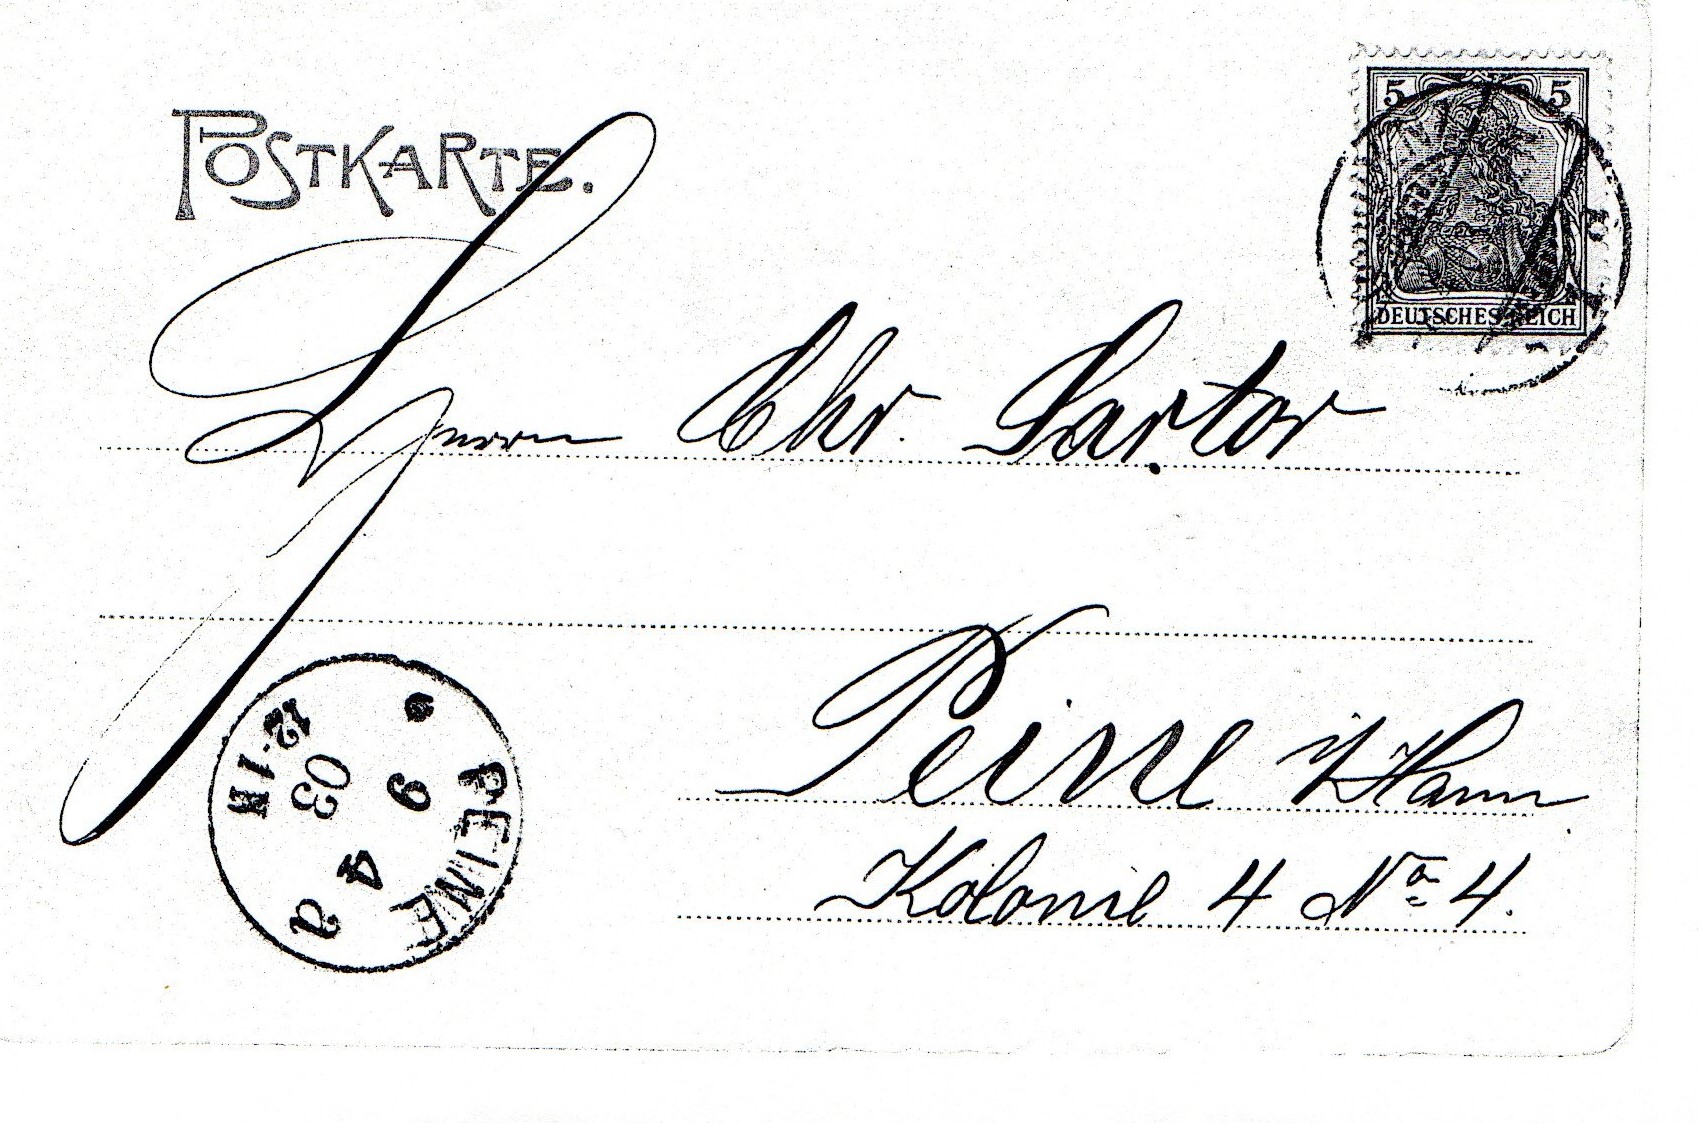 POSTKARTE.
5 5
DEUTSCHES REICH
Herrn Chr. Sartor
Peine i/Hann
Kolonie 4 No 4.
PEINE
9 4
03
12-1N
a